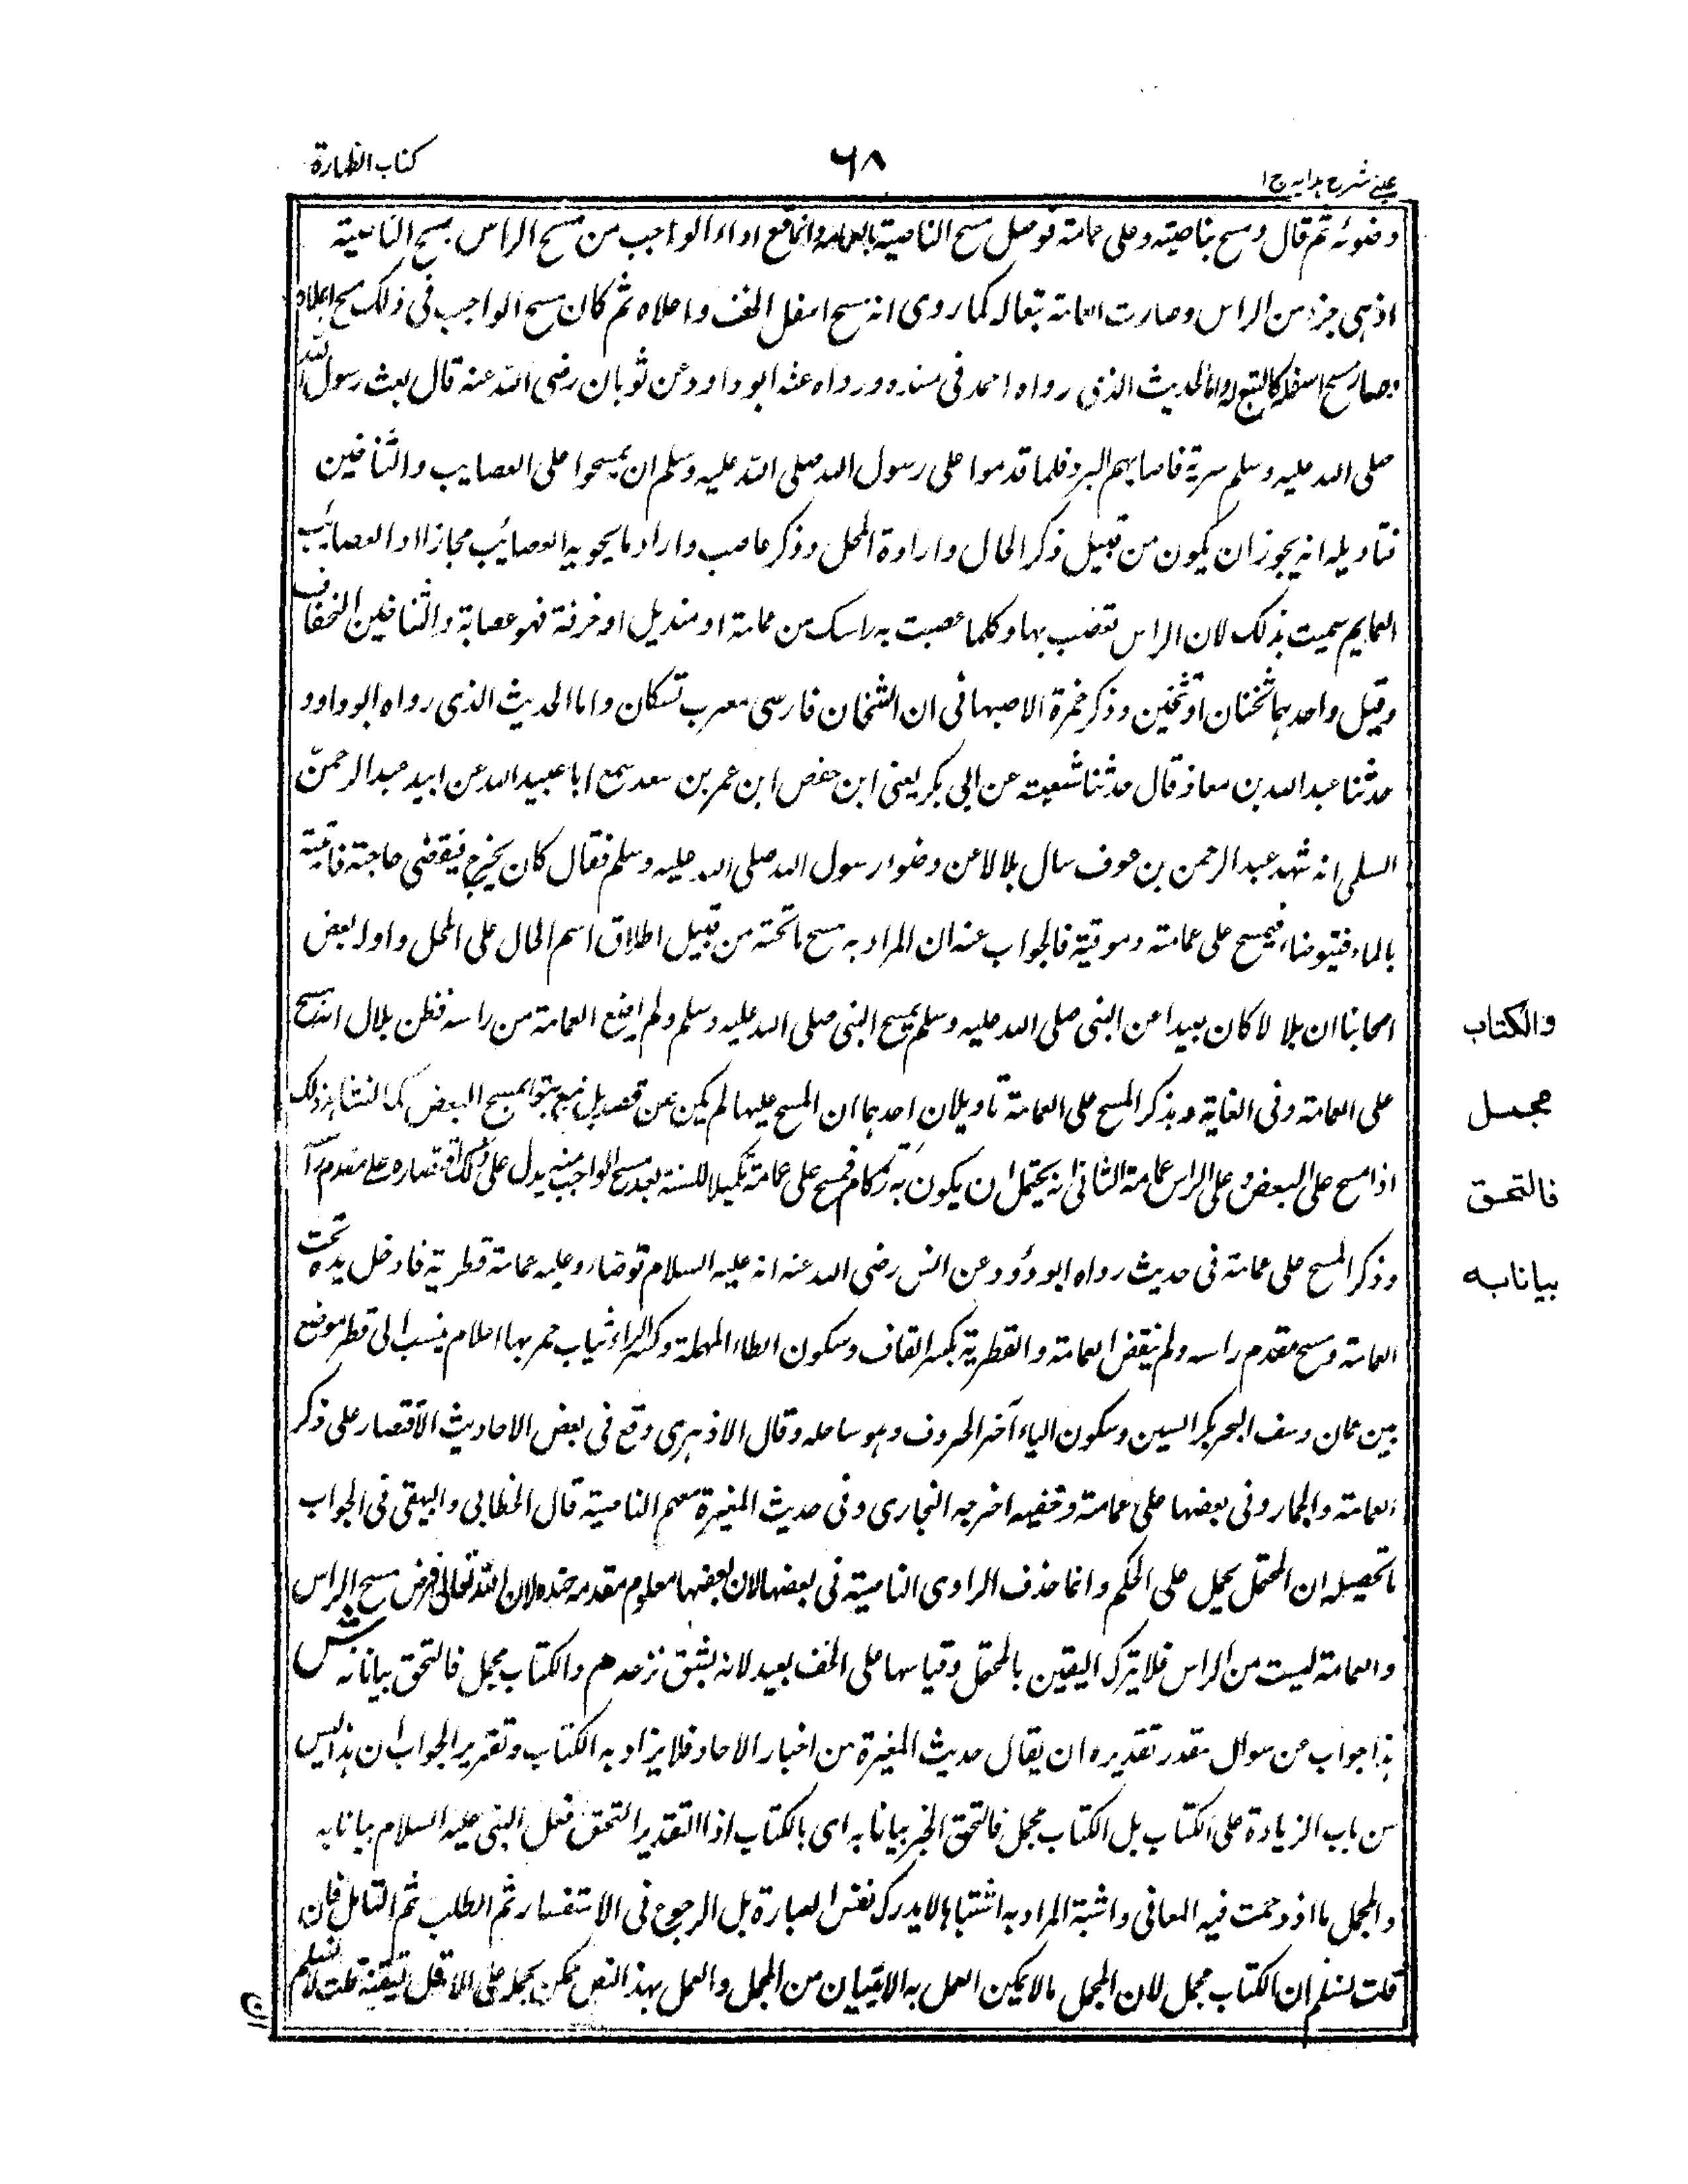 عینی شرح ہدایہ ج ۱
٦٨
کتاب الطہارة
وضوئه ثم قال ومسح بناصيته وعلى عمامته فوصل مسح الناصية بالعمامة وانما وقع اداء الواجب من مسح الراس بمسح الناصية
اذ هي جزء من الراس وصارت العمامة تبعا له كما روى انه مسح اسفل الخف واعلاه ثم كان مسح الواجب في ذلك مسح اعلاه
وصار مسح اسفله كالتبع له واما الحديث الذي رواه احمد في مسنده ورواه عنه ابو داود عن ثوبان رضى الله عنه قال بعث رسول الله
صلى الله عليه وسلم سرية فاصابهم البرد فلما قدموا على رسول الله صلى الله عليه وسلم ان يمسحوا على العصايب والتساخين
فتاويله انه يجوز ان يكون من قبيل ذكر الحال وارادة المحل وذكر عاصب واراد ما يحويه العصائب مجازا او العصائب
العمايم سميت بذلك لان الراس تعصب بها وكلما عصبت به راسك من عمامة او منديل او خرقة فهو عصابة والتساخين الخفاف
وقيل واحدهما تخنان او تخين وذكر حمزة الاصبهاني ان التخان فارسى معرب تسكان واما الحديث الذي رواه ابو داود
حدثنا عبد الله بن معاذ قال حدثنا شعبة عن ابى بكر يعنى ابن حفص ابن عمر بن سعد سمع ابا عبيد الله عن ابيه عبد الرحمن
السلمى انه شهد عبد الرحمن بن عوف سال بلالا عن وضوء رسول الله صلى الله عليه وسلم فقال كان يخرج فيقضى حاجته فآتيه
بالماء فيتوضاء فيمسح على عمامته وموقيه فالجواب عنه ان المراد به مسح ماتحته من قبيل اطلاق اسم الحال على المحل واوله بعض
اصحابنا ان بلالا كان بعيدا من النبى صلى الله عليه وسلم يمسح النبى صلى الله عليه وسلم ولم يضع العمامة من راسه فظن بلال انه مسح
على العمامة وفى الغاية وبذكر المسح على العمامة تاويلان احدهما ان المسح عليها لم يكن عن قصد بل تبع بتبع المسح البعض كما نشاهد ذلك
اذا مسح على البعض وعلى الراس عمامة الثانى انه يحتمل ان يكون به زكام فمسح على عمامته تكميلا للسنة بعد مسح الواجب منه يدل على ذلك اقتصاره على مقدم رأسه
وذكر المسح على عمامته فى حديث رواه ابو دؤود عن انس رضى الله عنه انه عليه السلام توضاء وعليه عمامة قطرية فادخل يده تحت
العمامة ومسح مقدم راسه ولم ينقض العمامة والقطرية بكسر القاف وسكون الطاء المهملة وكسر الراء ثياب حمر بها اعلام ينسب الى قطر موضع
بين عمان وسيف البحر بكسر السين وسكون الياء آخر الحروف وهو ساحله وقال الازهرى وقع فى بعض الاحاديث الاقتصار على ذكر
العمامة والخمار وفى بعضها على عمامته وخفيه اخرجه البخارى وفى حديث المغيرة معهم الناصية قال الخطابى والبيهقى فى الجواب
ما تحصيله ان المحتمل يحمل على المحكم وانما حذف الراوى الناصية فى بعضها لان بعضها معلوم مقدمه عنده لان الله تعالى فرض مسح الراس
والعمامة ليست من الراس فلا يترك اليقين بالمحتمل وقياسها على الخف بعيد لانه يشق نزعه م والكتاب مجمل فالتحق بيانا به ش
هذا جواب عن سوال مقدر تقديره ان يقال حديث المغيرة من اخبار الاحاد فلا يزاد به الكتاب وتقرير الجواب ان هذا ليس
من باب الزيادة على الكتاب بل الكتاب مجمل فالتحق الخبر بيانا به اى بالكتاب اذا التقدير التحق فعل النبى عليه السلام بيانا به
والمجمل ما ازدحمت فيه المعانى واشتبه المراد به اشتباها لا يدرك بنفس العبارة بل الرجوع فى الاستفسار ثم الطلب ثم التامل فان
قلت لا نسلم ان الكتاب مجمل لان المجمل ما لا يمكن العمل به الا ببيان من المجمل والعمل بهذا النص ممكن بحمله على الاقل لتيقنه قلت لا نسلم
والكتاب
مجمل
فالتحق
بيانا به